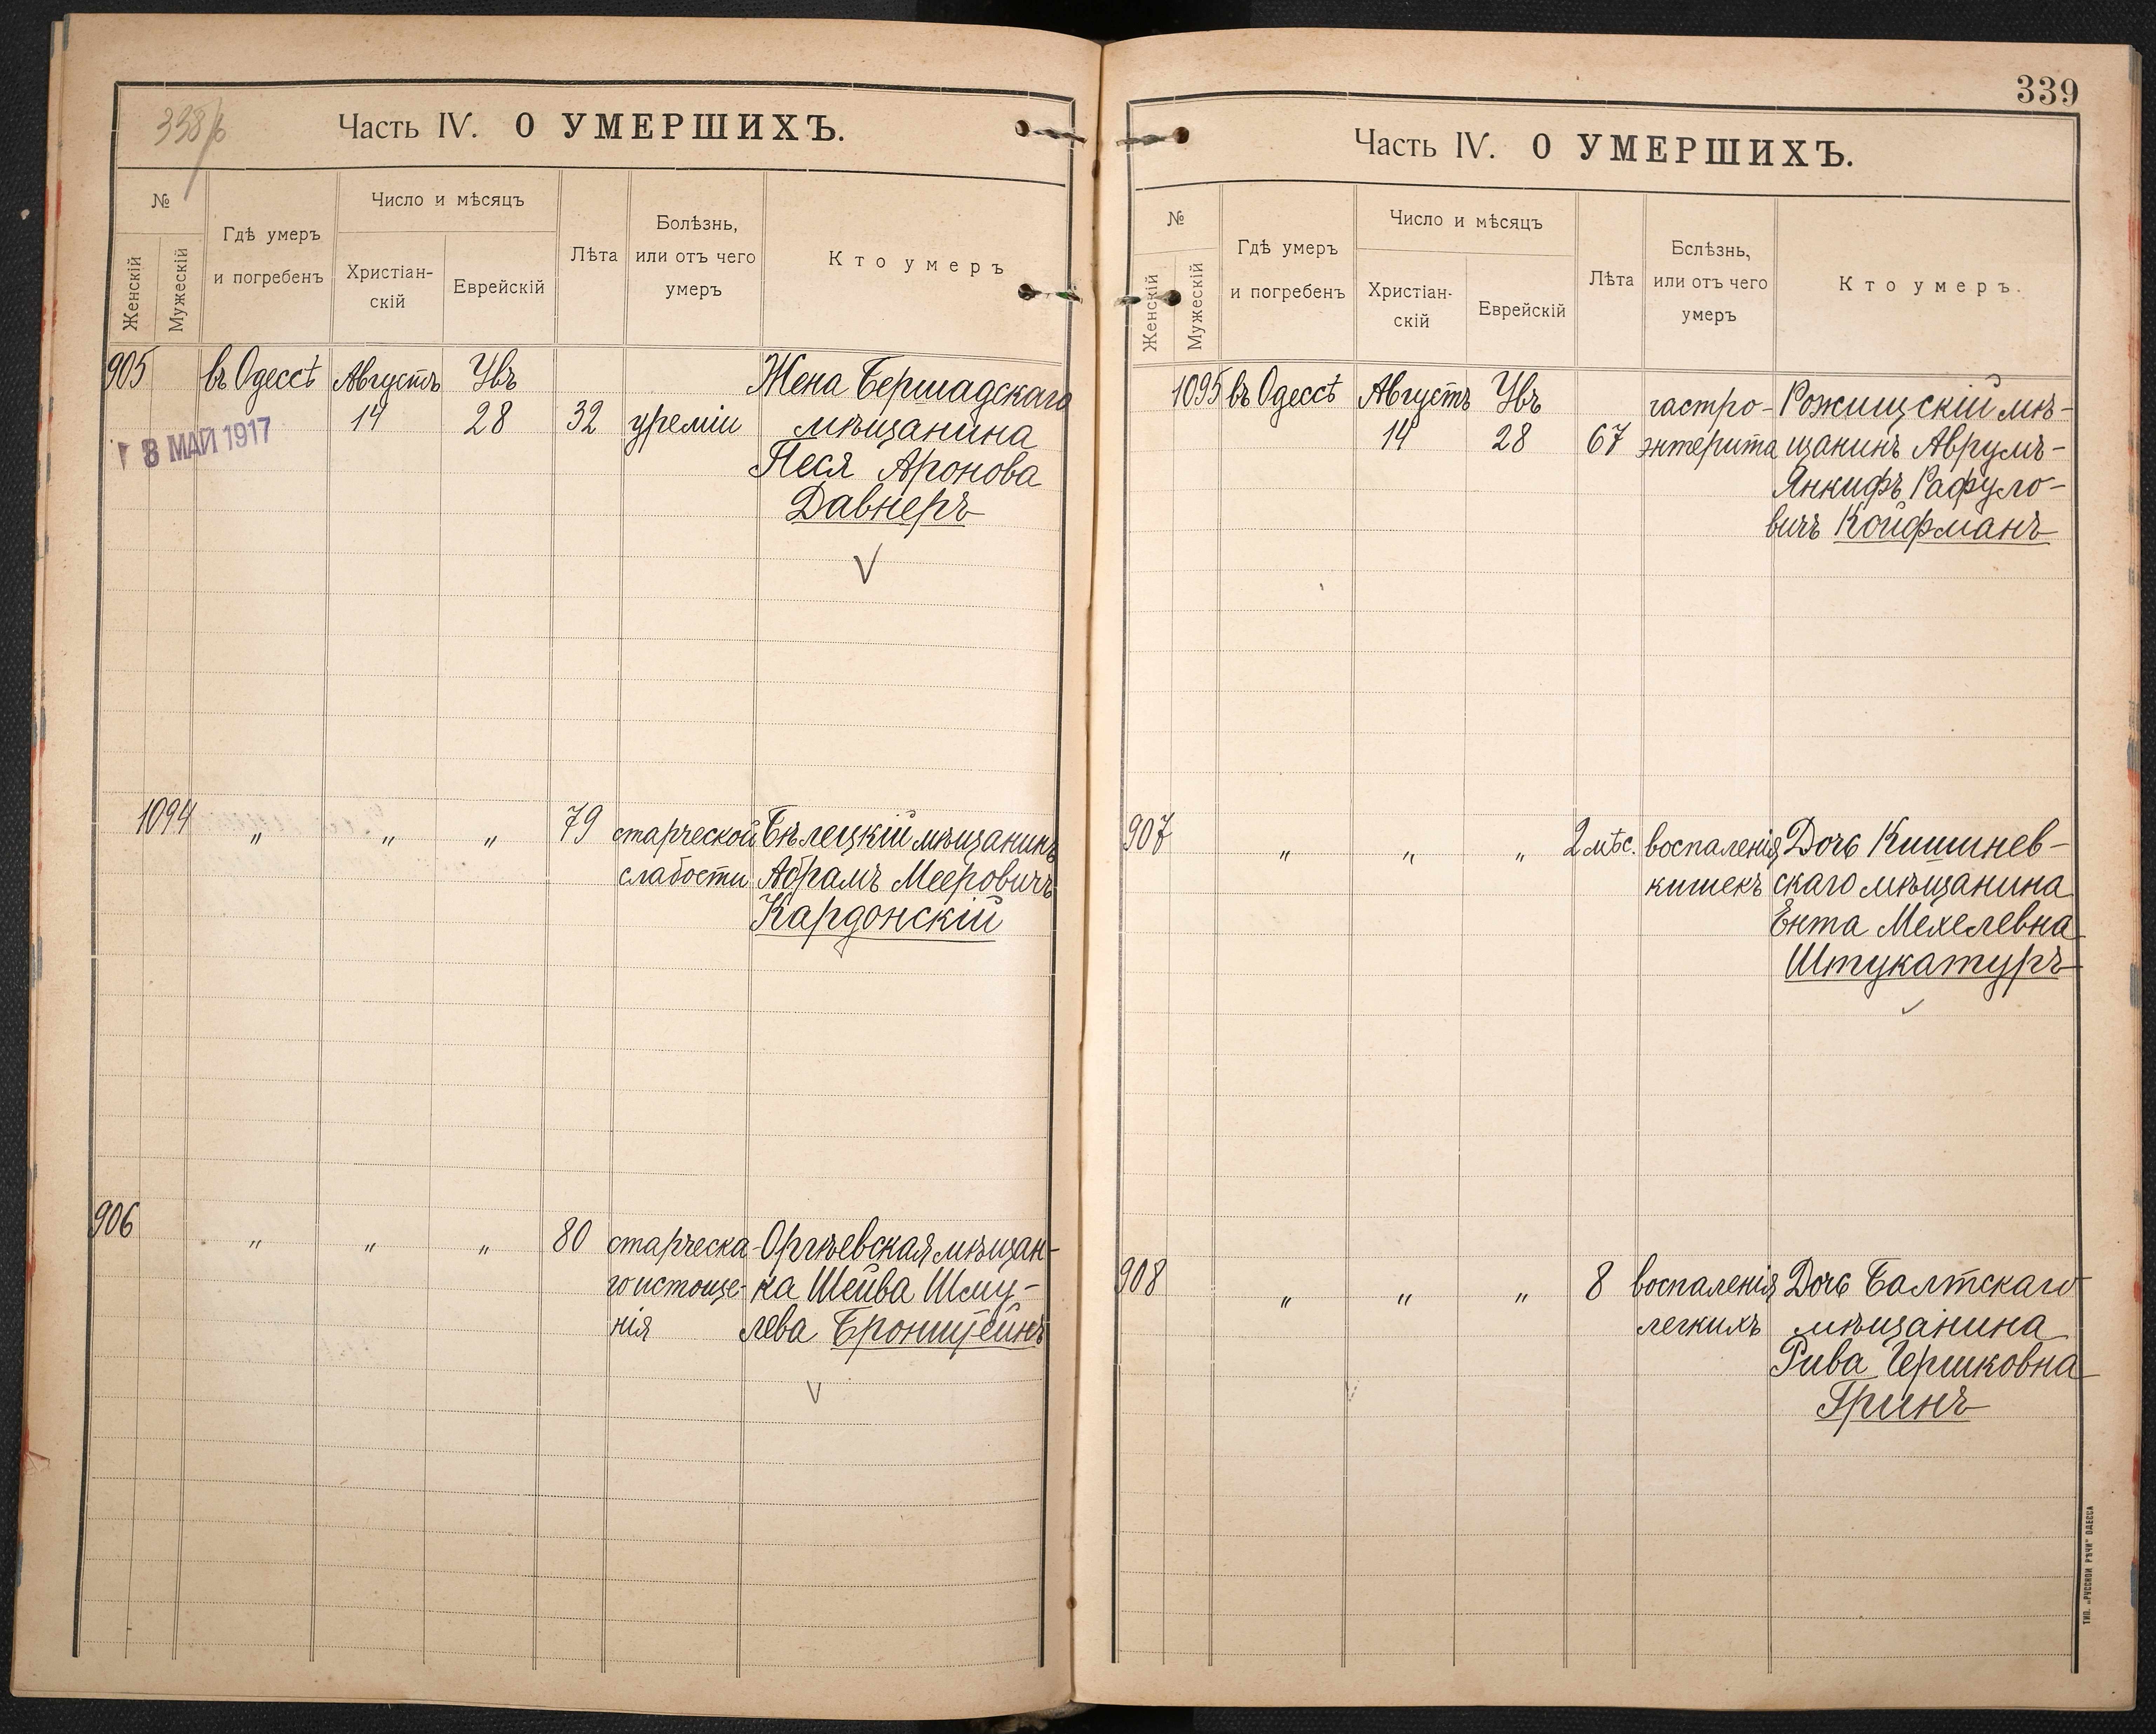 338/б
Часть IV. О УМЕРШИХЪ.
№
Женскій
Мужескій
Гдѣ умеръ
и погребенъ
Число и мѣсяцъ
Христіан-
скій
Еврейскій
Лѣта
Болѣзнь,
или отъ чего
умеръ
Кто умеръ
905 въ Одессѣ Августъ Увъ Жена Бершадскаго
14 28 32 уреміи мѣщанина
18 МАЙ 1917
Песя Аронова
Давнеръ
1094 „ „ „ 79 старческой Бѣлецкій мѣщанинъ
слабости Абрамъ Мееровичъ
Кардонскій
906 „ „ „ 80 старческа- Оргѣевская мѣщан-
го истоще- ка Шейва Шму-
нія лева Бронштейнъ
339
Часть IV. О УМЕРШИХЪ.
№
Женскій
Мужескій
Гдѣ умеръ
и погребенъ
Число и мѣсяцъ
Христіан-
скій
Еврейскій
Лѣта
Бслѣзнь,
или отъ чего
умеръ
Кто умеръ.
1095 въ Одессѣ Августъ Увъ гастро- Рожищскій мѣ-
14 28 67 энтерита щанинъ Аврумъ-
Янкифъ Рафуло-
вичъ Койфманъ
907 „ „ „ 2 мѣс. воспаленія Дочь Кишинев-
кишекъ скаго мѣщанина
Ента Мехелевна
Штукатуръ
908 „ „ „ 8 воспаленія Дочь Балтскаго
легкихъ мѣщанина
Рива Гершковна
Гринъ
ТИП. „РУССКОЙ РѢЧИ" ОДЕССА